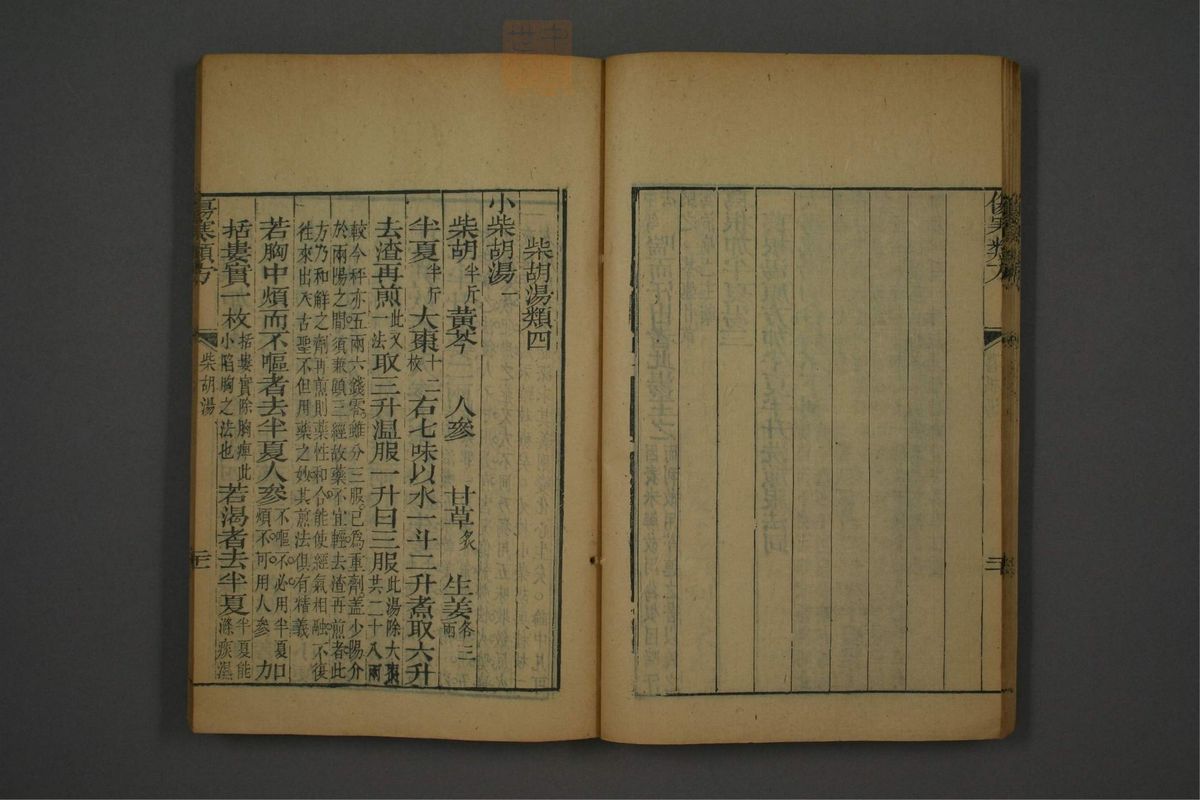 傷寒類方
柴胡湯類四
小柴胡湯一
柴胡半斤 黃芩 人參 甘草炙 生姜各三兩
半夏半斤 大棗十二枚 右七味以水一斗二升煮取六升
去渣再煎此又一法 取三升温服一升日三服此湯除大棗共二十八兩
較今秤亦五兩六錢零雖分三服已爲重劑蓋少陽介
於兩陽之間須兼顧三經故藥不宜輕去渣再煎者此
方乃和解之劑再煎則藥性和合能使經氣相融不復
往來出入古聖不但用藥之妙其煎法俱有精義
若胸中煩而不嘔者去半夏人參不嘔不必用半夏口煩不可用人參 加
括蔞實一枚括蔞實除胸痺此小陷胸之法也 若渴者去半夏半夏能滌痰濕
傷寒類方
柴胡湯